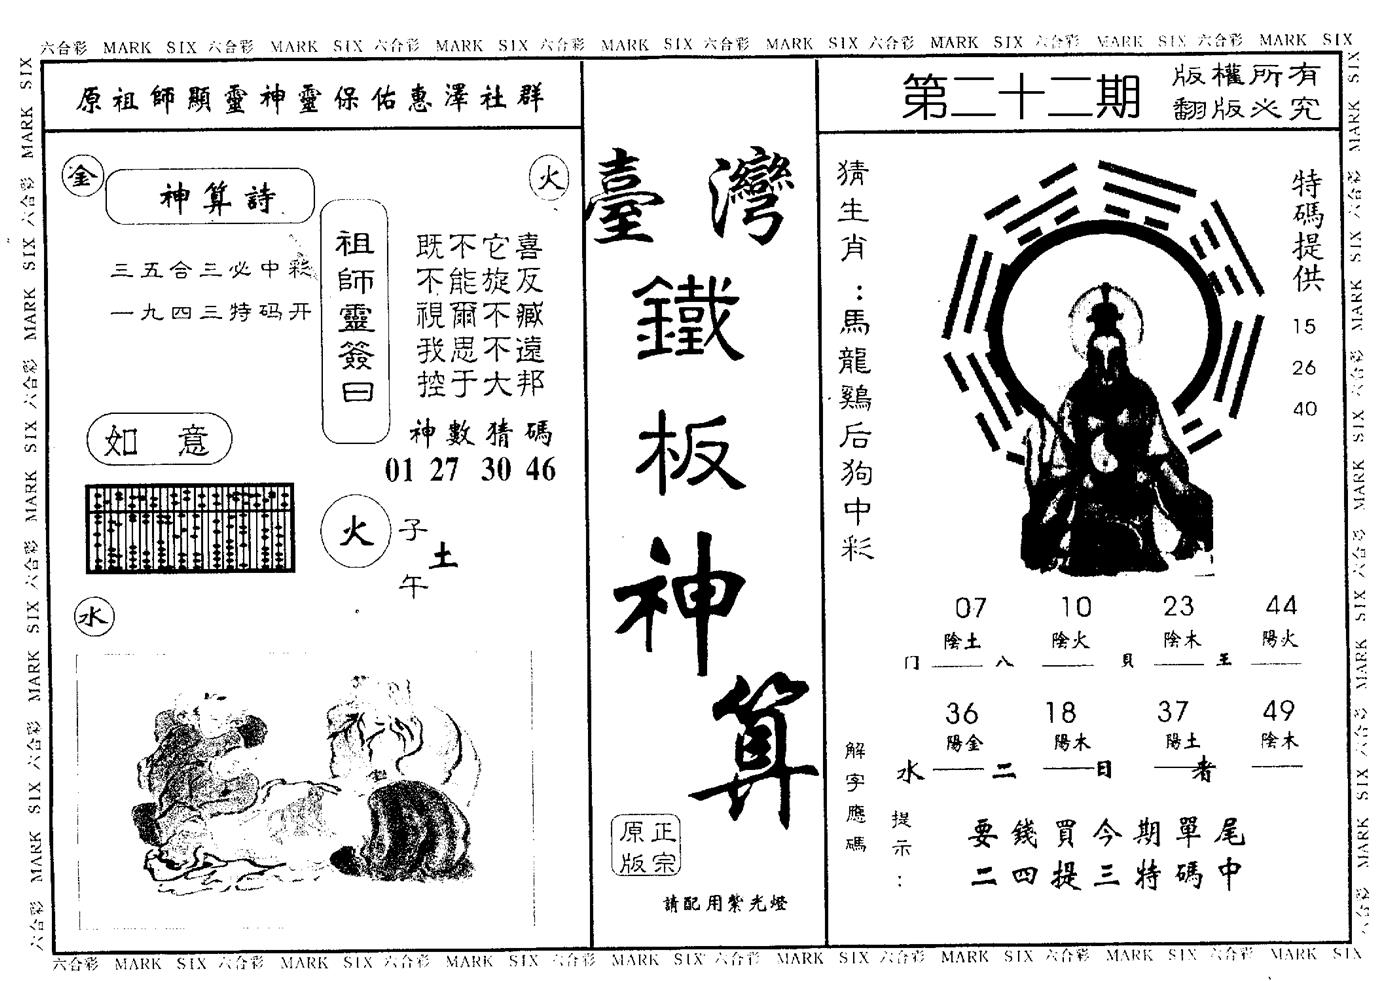 六合彩 MARK SIX 六合彩 MARK SIX 六合彩 MARK SIX 六合彩 MARK SIX 六合彩 MARK SIX 六合彩 MARK SIX 六合彩 MARK SIX 六合彩 MARK SIX
原祖師顯靈神靈保佑惠澤社群
金
神算詩
火
三五合三必中彩
一九四三特码开
祖師靈簽曰
既不它喜
不能旋反
視爾不臧
我思不遠
控于大邦
神數猜碼
01 27 30 46
如意
火
子
土
午
水
臺灣
鐵
板
神
算
正宗
原版
請配用紫光燈
第二十二期
版權所有
翻版必究
猜生肖：馬龍鷄后狗中彩
特碼提供
15
26
40
07 10 23 44
陰土 陰火 陰木 陽火
门 八 貝 王
36 18 37 49
陽金 陽木 陽土 陰木
水 二 日 者
解字應碼
提示：
要錢買今期單尾
二四提三特碼中
六合彩 MARK SIX 六合彩 MARK SIX 六合彩 MARK SIX 六合彩 MARK SIX 六合彩 MARK SIX 六合彩 MARK SIX 六合彩 MARK SIX 六合彩 MARK SIX